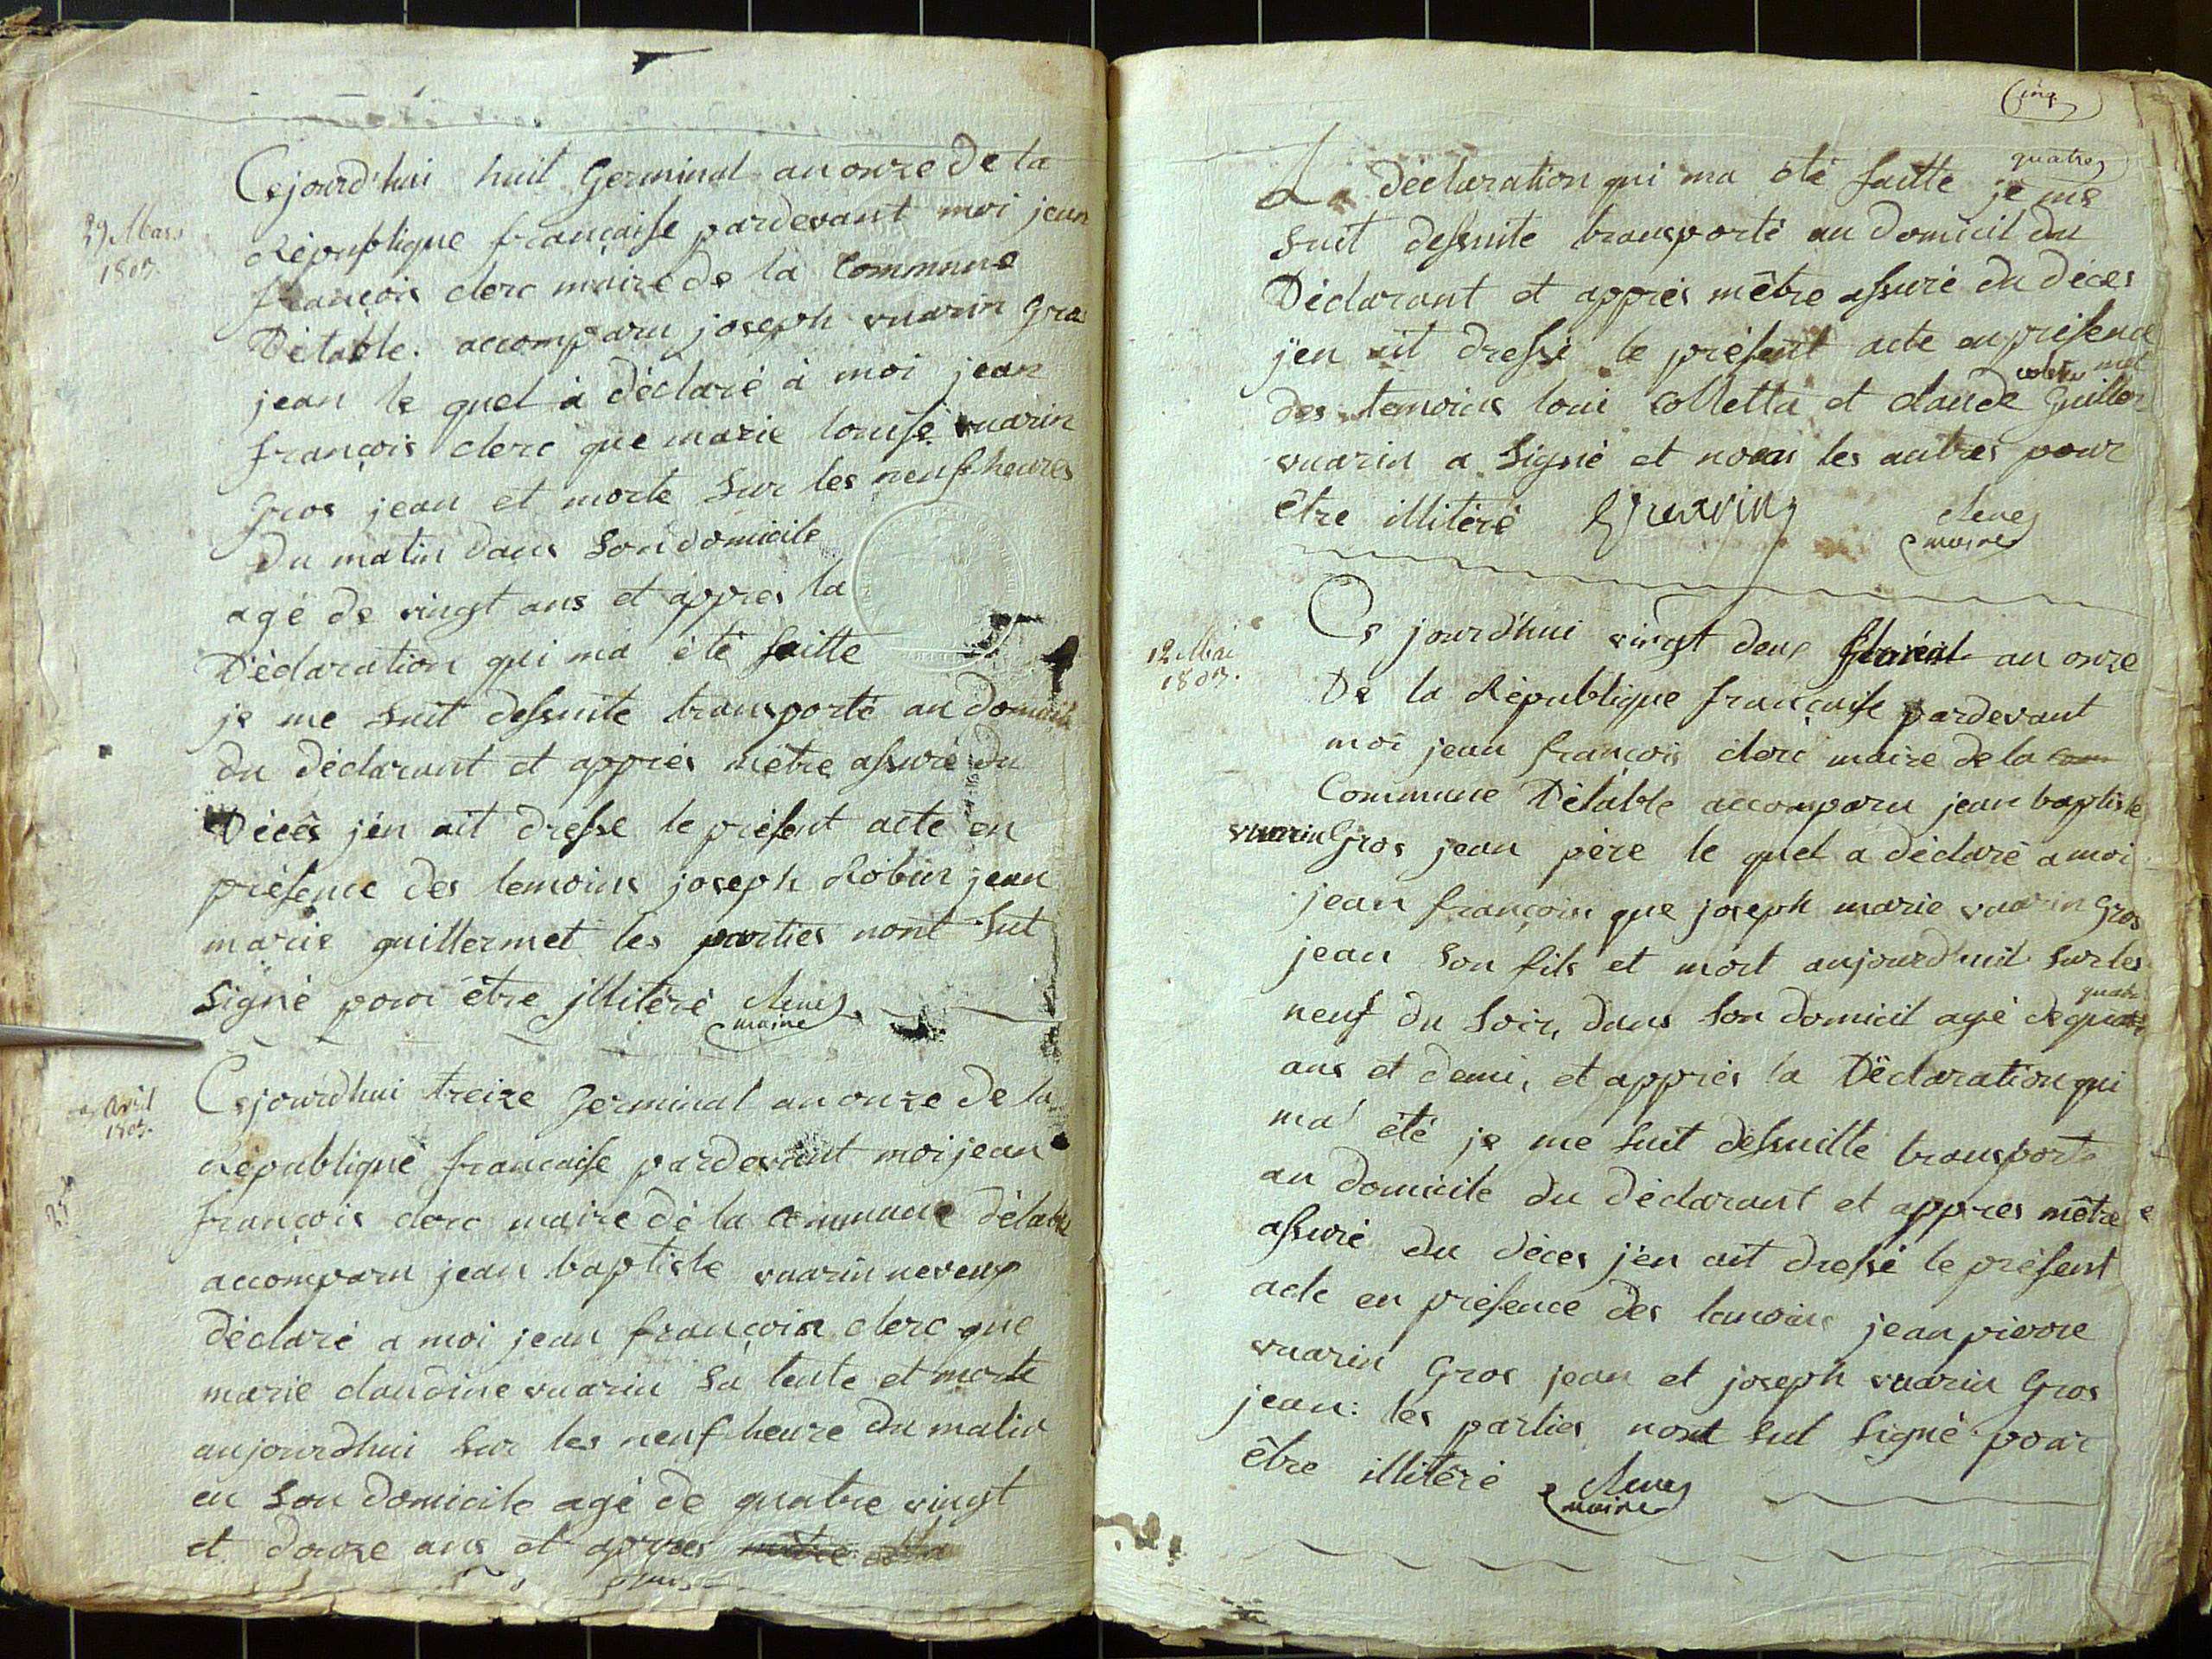 29 Mars
1803.
Cejourd'hui huit Germinal an onze de la
République françaiſe pardevant moi jean
françois clerc maire de la Commune
Détable. accomparu joseph vuarin Gros
jean le quel à déclaré à moi jean
françois clerc que marie louiſe vuarin
Gros jean et morte sur les neuf heures
du matin dans son domicile
agé de vingt ans et appres la
Déclaration qui ma été faitte
je me suit deſsuite transporté au domicile
du déclarant et apprés mêtre aſsuré du
Décês jén ait dreſse le préſent acte en
préſence des temoins joseph Robin jean
marie guillermet les parties nont sut
signé pour être jllitéré
maire
Avril
1803.
Cejourdhui treize Germinal an onze de la
République francaiſe pardevant moi jean
françois clerc maire dé la commune détable
accomparu jean baptiste vuarin neveux
déclaré a moi jean françois clerc que
marie claudine vuarin sa tente et morte
aujourdhui sur les neuf heure du matin
en son domicile agé de quatre vingt
et douze ans et appres
quatre
La déclaration qui ma été faitte je me
suit deſsuite transporté au domicil du
Déclarant et apprés mêtre aſsuré du déces
j'en ait dreſsé le préſent acte en préſence
des temoins loui colletta et claude Guiller
met
vuarin a signé et noan les autres pour
être illitéré vuarin
maire
12 Mai
1803.
Ce jourd'hui vingt deux floréal an onze
De la République françaiſe pardevant
moi jean françois clerc maire de la com
Commune Détable accomparu jean baptiste
vuarin Gros jean père le quel a déclaré a moi
jean françois que joseph marie vuarin Gros
jean son fils et mort aujourd'huit sur les
quatre
neuf du soir, dans son domicil agé de quatre
ans et demi, et apprés la Déclaration qui
ma' été je me suit deſsuitte transporté
au domicile du déclarant et appres mêtre
aſsuré du déces j'en ait dreſsé le préſent
acte en préſence des temoins jean pierre
vuarin Gros jean et joseph vuarin Gros
jean: les parties nont sut signé pour
être illitéré
maire